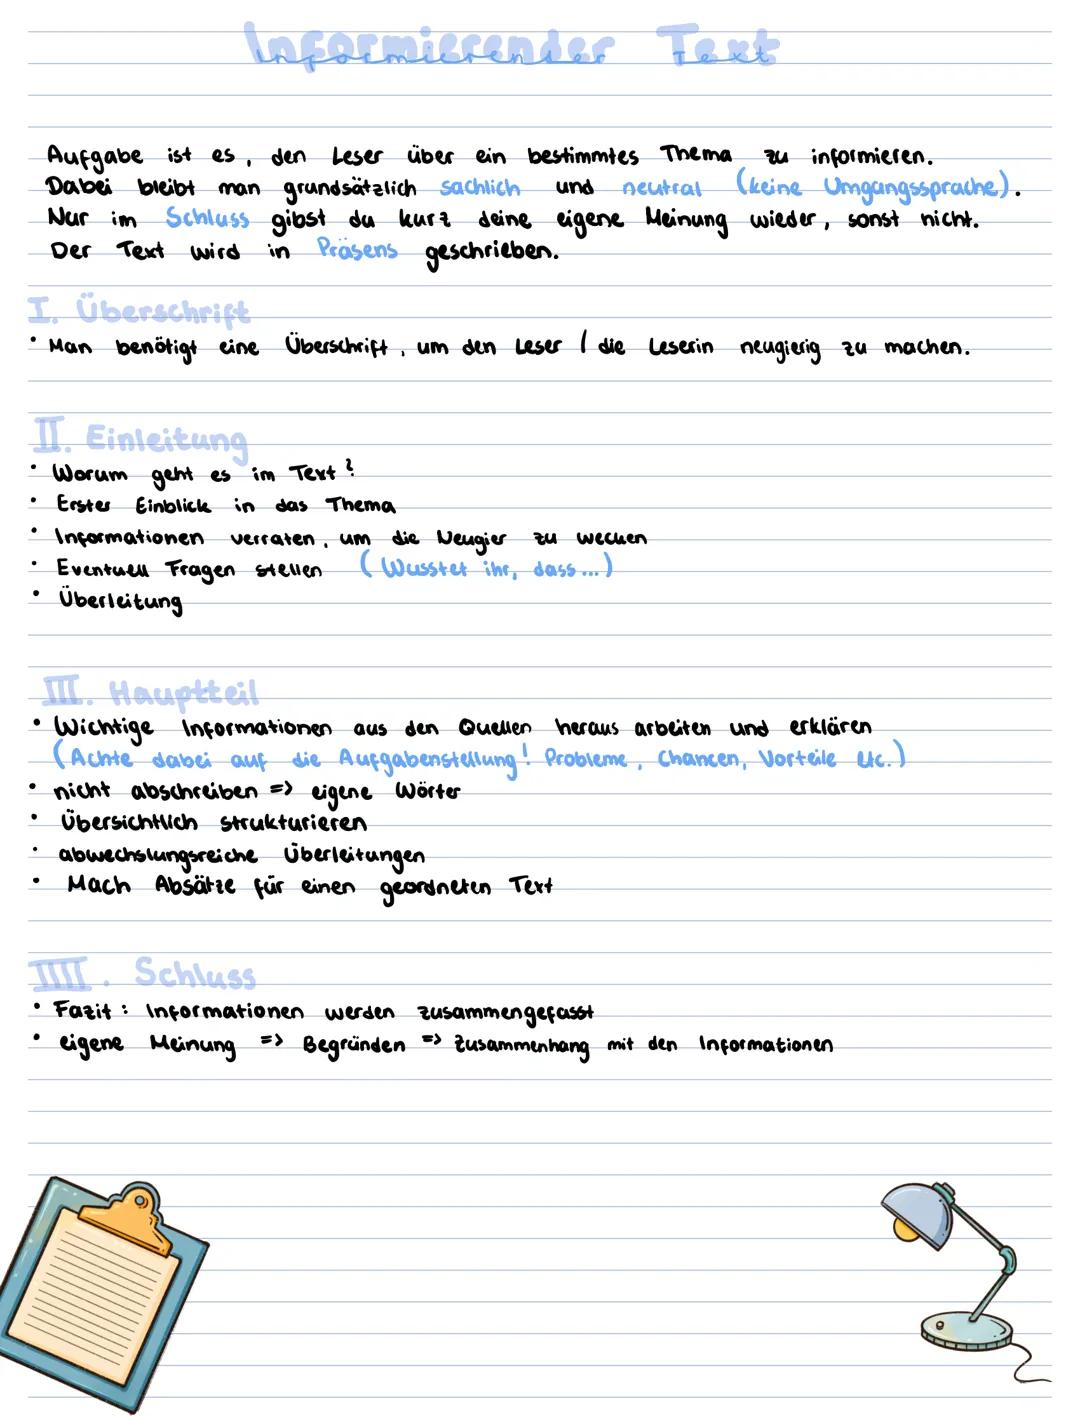 Informierender Text
Aufgabe ist es, den Leser über ein bestimmtes Thema zu informieren.
Dabei bleibt man grundsätzlich sachlich und neutral (keine Umgangssprache).
Nur im Schluss gibst du kurz deine eigene Meinung wieder, sonst nicht.
Der Text wird in Präsens geschrieben.
I. Überschrift
• Man benötigt eine Überschrift, um den Leser / die Leserin neugierig zu machen.
II. Einleitung
• Worum geht es im Text?
• Erster Einblick in das Thema
• Informationen verraten, um die Neugier zu wecken
• Eventuell Fragen stellen (Wusstet ihr, dass...)
• Überleitung
III. Hauptteil
• Wichtige Informationen aus den Quellen heraus arbeiten und erklären
(Achte dabei auf die Aufgabenstellung! Probleme, Chancen, Vorteile etc.)
• nicht abschreiben => eigene Wörter
• Übersichtlich strukturieren
• abwechslungsreiche Überleitungen
• Mach Absätze für einen geordneten Text
IIII. Schluss
• Fazit: Informationen werden zusammengefasst
• eigene Meinung => Begründen => Zusammenhang mit den Informationen